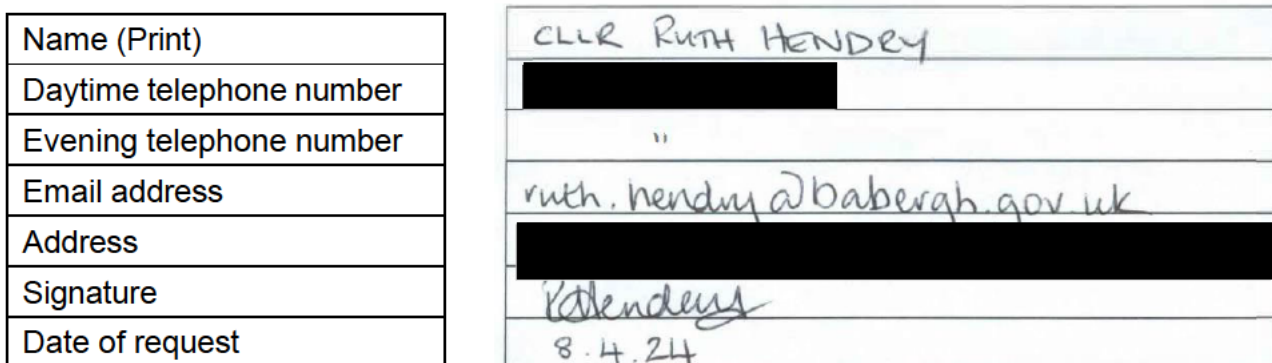 Name (Print) CLLR RUTH HENDRY
Daytime telephone number
Evening telephone number "
Email address ruth.hendry@babergh.gov.uk
Address
Signature RHendry
Date of request 8.4.24